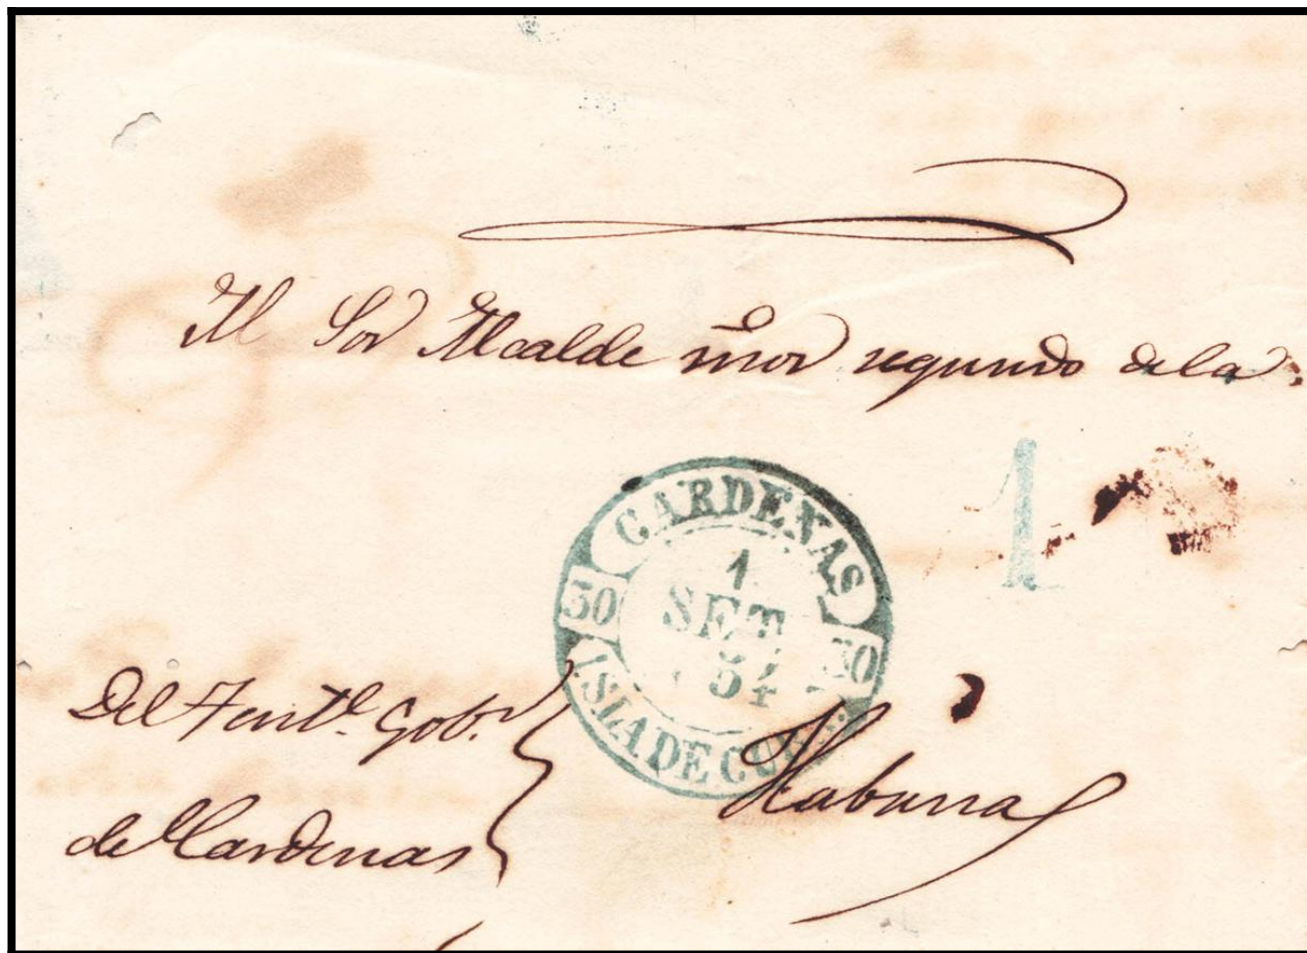 Al Sor Alcalde mor segundo de la
1
CARDENAS
1
SET
54
30 30
ISLA DE CUBA.
Del Tente. Gobr.
de Cardenas
Habana